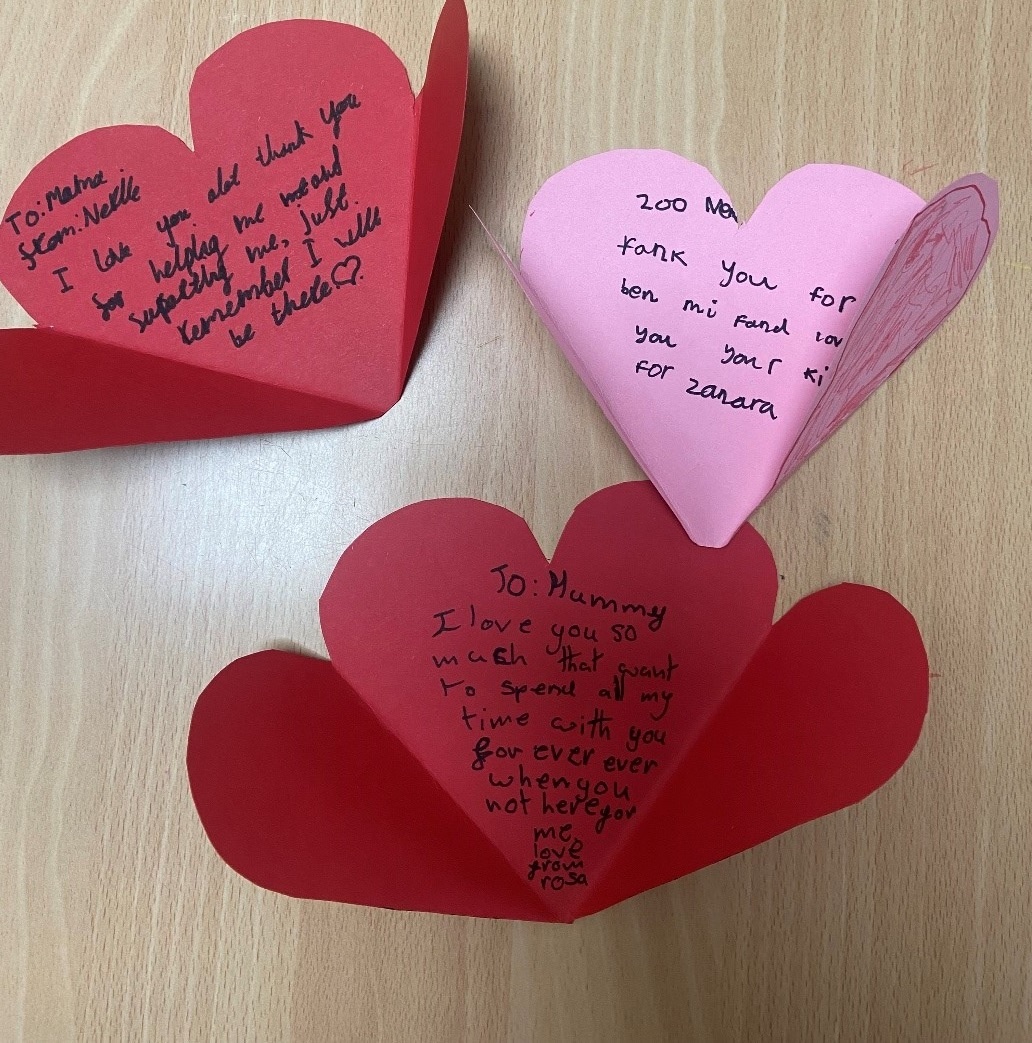 To: Mama
from: Nellie
I love you alot thank you
for helping me and
supporting me, just
remember I will
be there ♡.
200
fank you for
ben mi fand
you your ki
for zanara
To: Mummy
I love you so
much that want
to spend all my
time with you
for ever ever
when you
not here for
me.
love
from
rosa